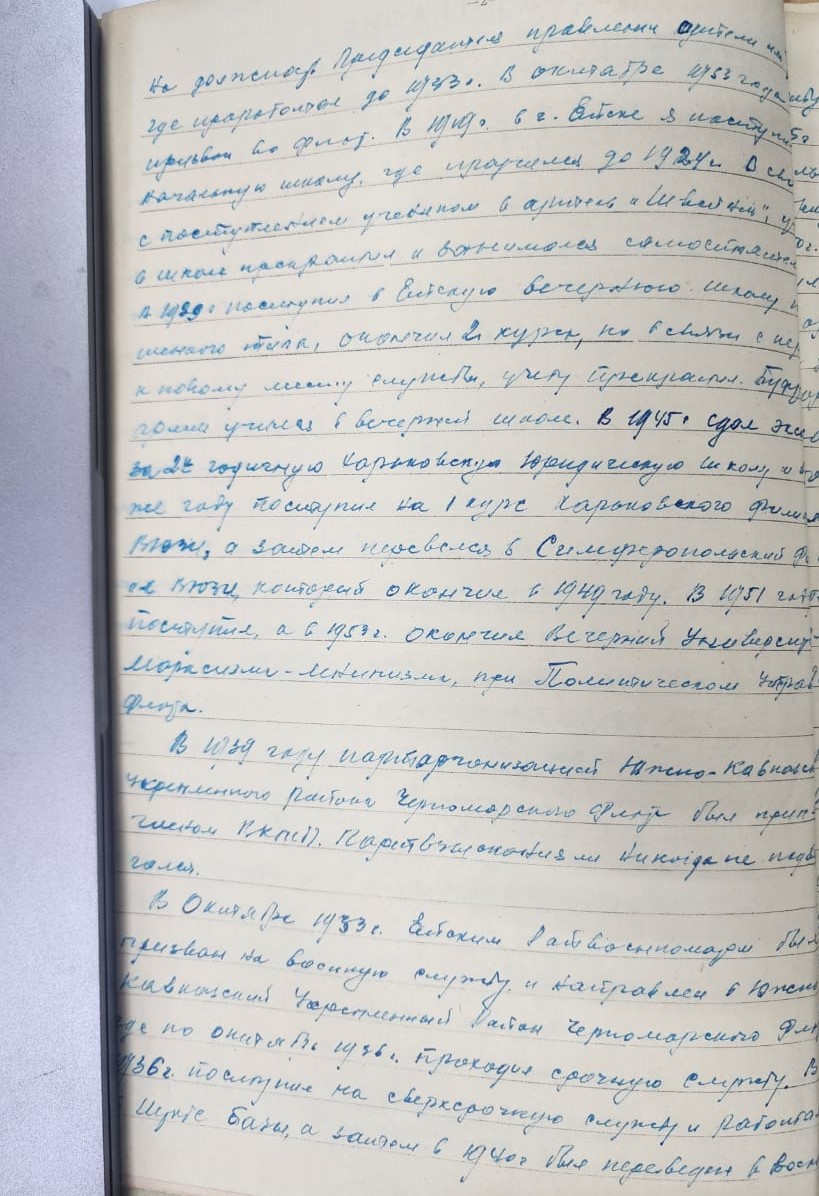 на должность Председателя правления артели
где проработал до 1933 г. В октябре 1933 года
призван во флот. В 1919 г. в г. Ейске я поступил
начальную школу, где проучился до 1924 г. В
с поступлением учеником в артель "Швейник",
в школе прекратил и занимался самостоятел
В 1939 г. поступил в Ейскую вечернюю школу
шенного типа, окончил 2 курса, но в связи с пер
к новому месту службы, учебу прекратил. Буду
учился в вечерней школе. В 1945 г. сдал экз
за 2х годичную Харьковскую Юридическую школу и в
же году поступил на 1 курс Харьковского филиа
ВЮЗИ, а затем перевелся в Симферопольский
ВЮЗИ, который окончил в 1949 году. В 1951 году
поступил, а в 1953 г. окончил Вечерний Университ
Марксизма-Ленинизма, при Политическом Управ
Флота.
В 1939 году парторганизацией Южно-Кавказс
укрепленного района Черноморского Флота был прин
членом ВКП(б). Партвзысканиям никогда не подв
гался.
В Октябре 1933 г. Ейским Райвоенкоматом был
призван на военную службу и направлен в Южно
Кавказский Укрепленный Район Черноморского Фло
где по октябрь 1936 г. проходил срочную службу. В
1936 г. поступил на сверхсрочную службу и работал
в Штабе базы, а затем в 1940 г. был переведен в Воен